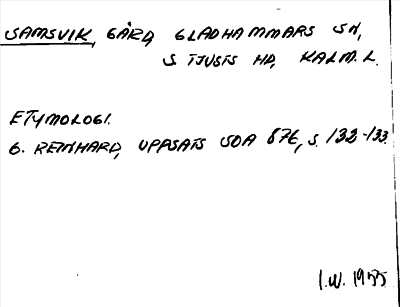 SAMSVIK, GÅRD, GLADHAMMARS SN,
S. TJUSTS HD, KALM. L.
ETYMOLOGI.
G. REINHARD, UPPSATS SOA 876, S. 132-133.
I.W. 1955